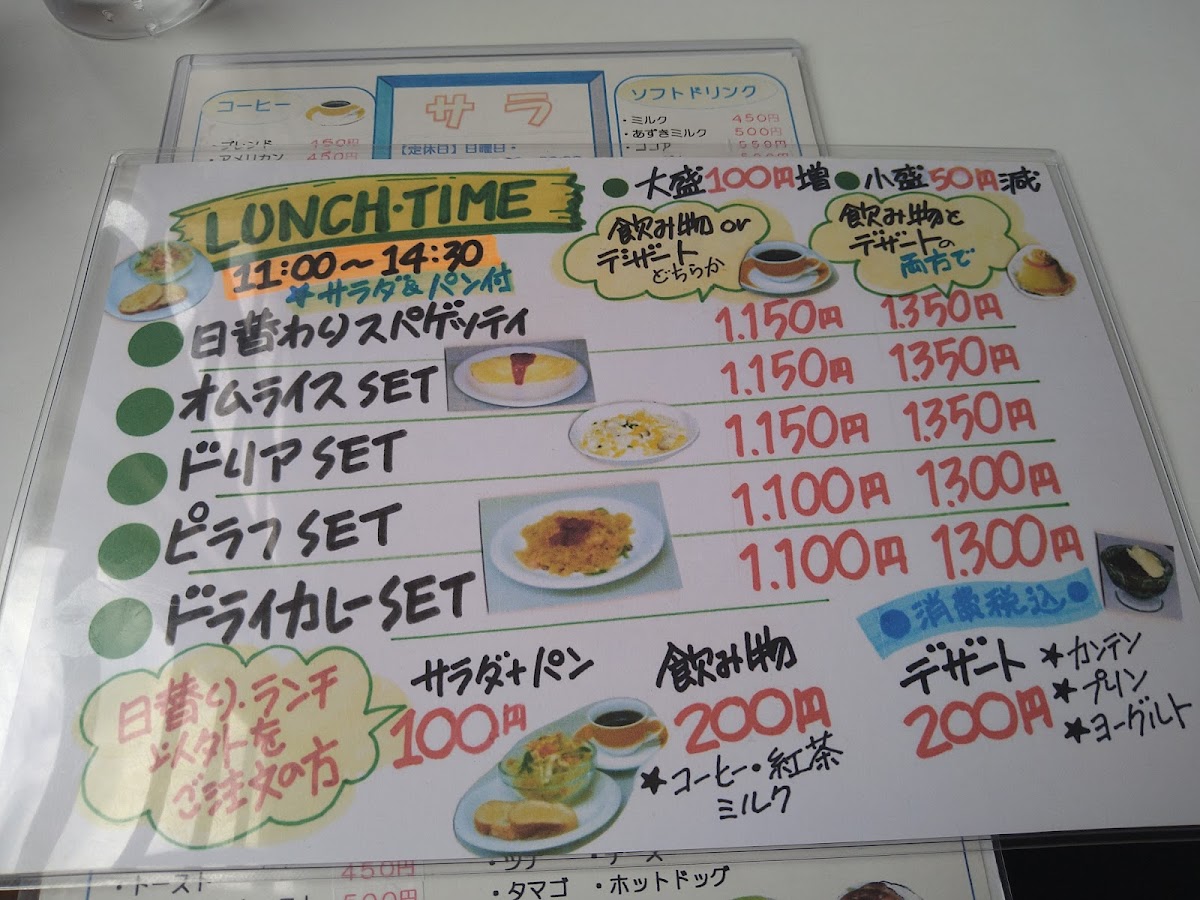 コーヒー
・ブレンド 450円
・アメリカン 450円
サラ
【定休日】日曜日・
ソフトドリンク
・ミルク 450円
・あずきミルク 500円
・ココア 550円
LUNCH・TIME
11:00〜14:30
★サラダ&パン付
●大盛100円増 ●小盛50円減
飲み物 or
デザート
どちらか
飲み物と
デザートの
両方で
日替わりスパゲッティ 1.150円 1.350円
オムライスSET 1.150円 1.350円
ドリアSET 1.150円 1.350円
ピラフSET 1.100円 1.300円
ドライカレーSET 1.100円 1.300円
●消費税込●
日替り・ランチ
以外を
ご注文の方
サラダ+パン
100円
飲み物
200円
★コーヒー・紅茶
ミルク
デザート
200円
★カンテン
★プリン
★ヨーグルト
・トースト 450円
500円
・ツナ
・タマゴ ・ホットドッグ